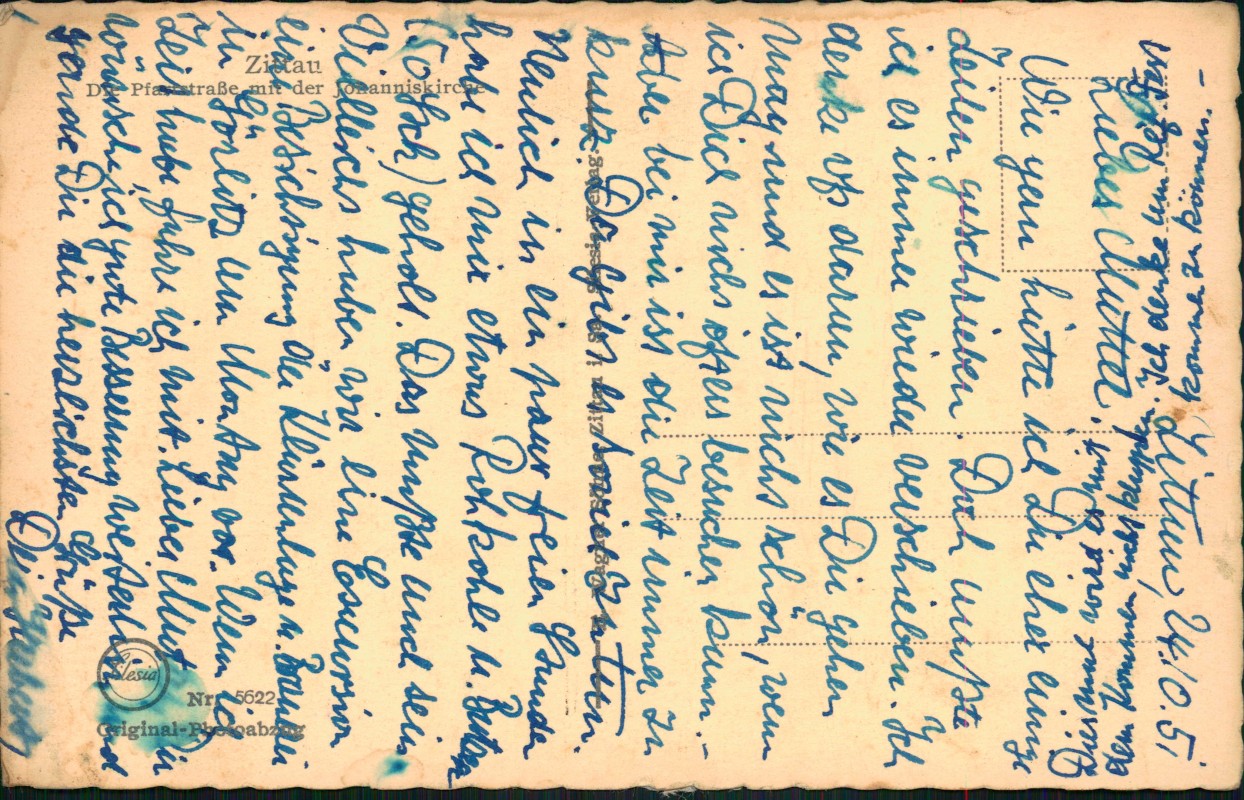 Zittau, 24.10.51
Mutter!
Wie gern hätte ich Dir eher einige
Zeilen geschrieben. Doch mußte
ich es immer wieder verschieben. Ich
denke oft daran, wie es Dir gehen
mag und es ist nicht schön, wenn
ich Dich nicht öfters besuchen kann.-
Aber bei mir ist die Zeit immer zu
kurz. Da gibt es soviel zu tun.
Neulich in ein paar freien Stunden
habe ich mir etwas Rohkohle u.
(50 ) geholt. Das mußte auch sein
Vielleicht haben wir eine Excursion
eine Besichtigung der u.
in Görlitz am Montag vor. Wenn ich
Zeit habe fahre ich mit. Lieber Dir
wünsche ich gute Besserung weiterhin und
sende Dir die herzlichsten Grüße
Dein Herbert
nicht klappen. Ich denke im
kommen zu können. -
Zittau
Die Pfarrstraße mit der Johanniskirche
Nr. 5622
Original-Photoabzug